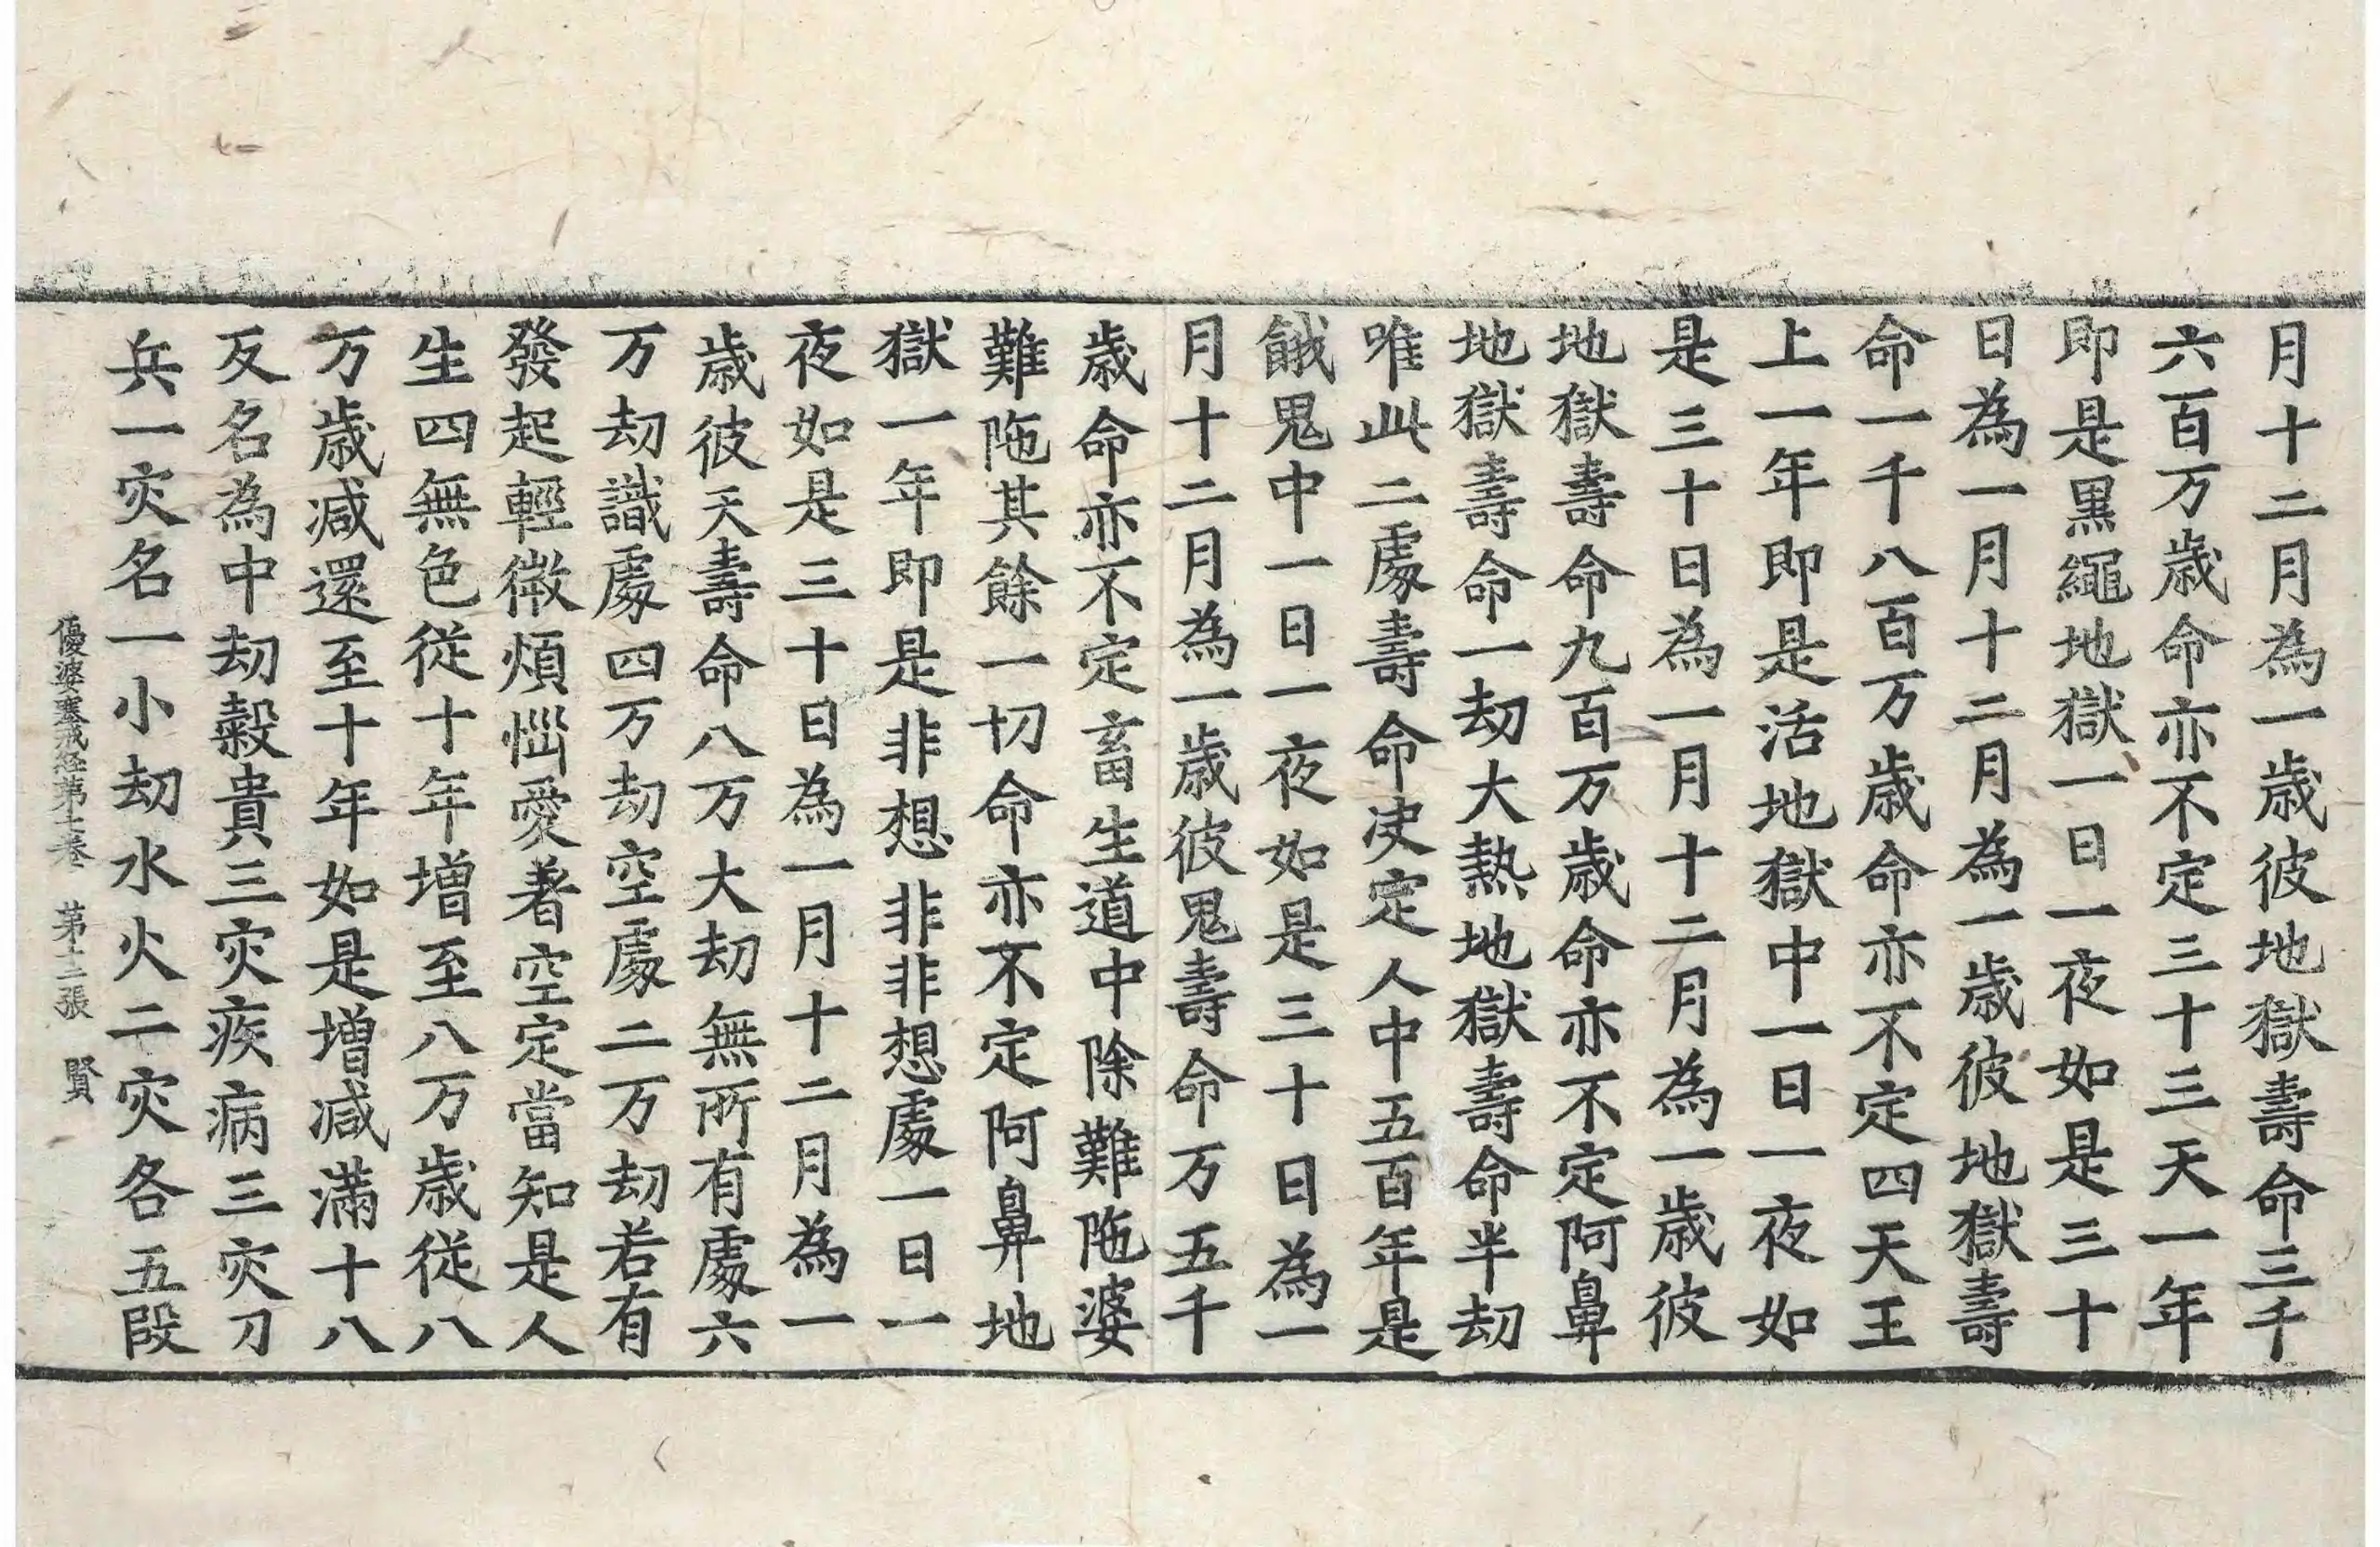 月十二月為一歳彼地獄壽命三千
六百万歳命亦不定三十三天一年
即是黒繩地獄一日一夜如是三十
日為一月十二月為一歳彼地獄壽
命一千八百万歳命亦不定四天王
上一年即是活地獄中一日一夜如
是三十日為一月十二月為一歳彼
地獄壽命九百万歳命亦不定阿鼻
地獄壽命一劫大熱地獄壽命半劫
唯此二處壽命决定人中五百年是
餓鬼中一日一夜如是三十日為一
月十二月為一歳彼鬼壽命万五千
歳命亦不定畜生道中除難陁婆
難陁其餘一切命亦不定阿鼻地
獄一年即是非想非非想處一日一
夜如是三十日為一月十二月為一
歳彼天壽命八万大劫無所有處六
万劫識處四万劫空處二万劫若有
發起輕微煩惱愛著空定當知是人
生四無色従十年增至八万歳従八
万歳减還至十年如是增减滿十八
反名為中劫穀貴三灾疾病三灾刀
兵一灾名一小劫水火二灾各五段
優婆塞戒経苐七卷 苐十二張 賢